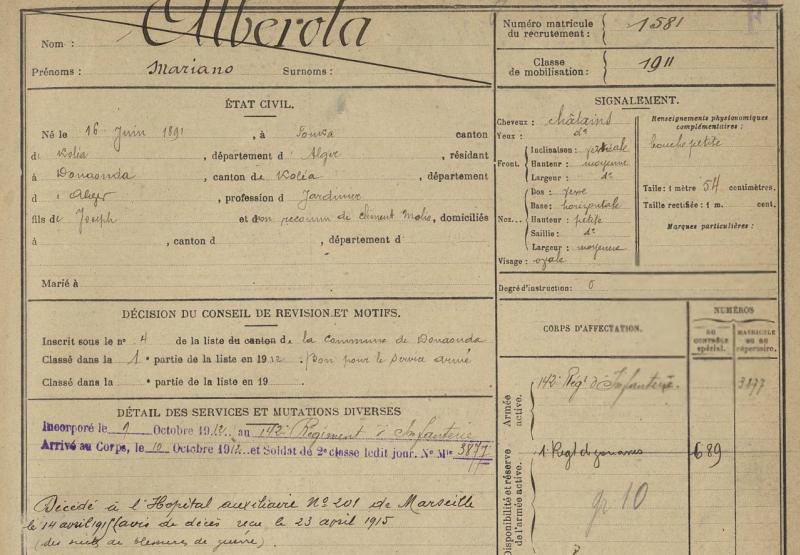 Nom : Alberola
Prénoms : Mariano Surnoms :
Numéro matricule du recrutement : 1581
Classe de mobilisation : 1911
ÉTAT CIVIL.
Né le 16 Juin 1891, à canton
d Koléa, département d Alger, résidant
à Douaouda, canton de Koléa, département
d Alger, profession d Jardinier
fils de Joseph et d non reconnu de, domiciliés
à , canton d , département d
Marié à
SIGNALEMENT.
Cheveux : châtains
Yeux : d°
Front. Inclinaison :
Hauteur : moyenne
Largeur : d°
Nez... Dos :
Base : horizontale
Hauteur : petite
Saillie : d°
Largeur : moyenne
Visage : ovale
Renseignements physionomiques complémentaires :
bouche petite
Taille : 1 mètre 54 centimètres.
Taille rectifiée : 1 m. cent.
Marques particulières :
Degré d'instruction : 0
DÉCISION DU CONSEIL DE REVISION ET MOTIFS.
Inscrit sous le n° 4 de la liste du canton de la Commune de Douaouda
Classé dans la 1e partie de la liste en 1912. Bon pour le service armé
Classé dans la e partie de la liste en 19
DÉTAIL DES SERVICES ET MUTATIONS DIVERSES
Incorporé le 9 Octobre 1912 au 142e Régiment d'Infanterie
Arrivé au Corps, le 10 Octobre 1912 et Soldat de 2e classe ledit jour. N° Mle 3877
Décédé à l'Hopital auxiliaire N° 201 de Marseille
le 14 avril 1915 (avis de décès reçu le 23 avril 1915
(des suites de blessures de guerre).
CORPS D'AFFECTATION.
NUMÉROS
DU CONTRÔLE spécial.
MATRICULE OU DU répertoire.
Armée active.
142e Régt d'Infanterie. 3877
Disponibilité et réserve de l'armée active.
1er Régt de zouaves 689
gr 10